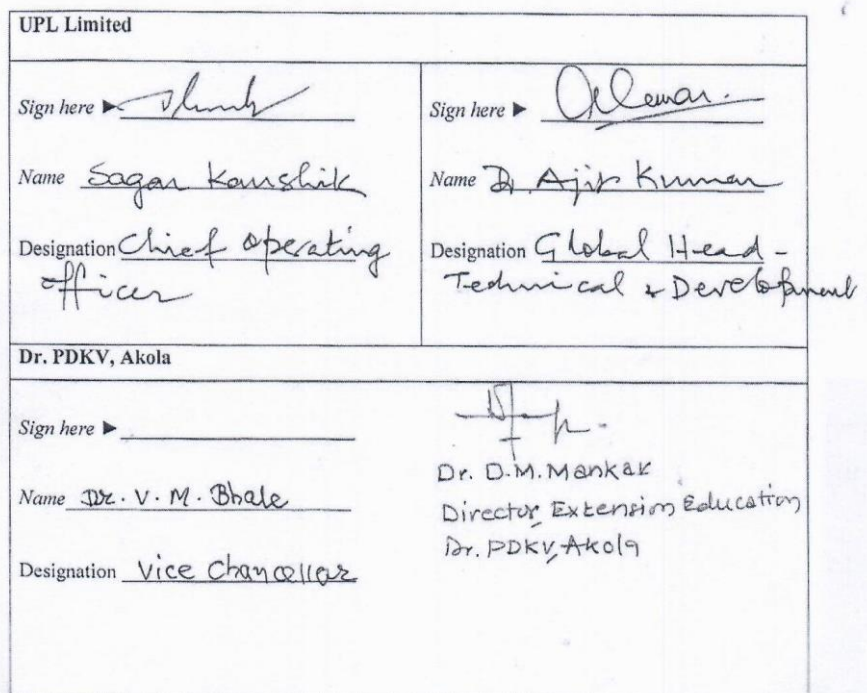 UPL Limited
Sign here ▶
Name Sagar Kaushik
Designation Chief operating
officer
Sign here ▶
Name Dr. Ajit Kumar
Designation Global Head -
Technical & Development
Dr. PDKV, Akola
Sign here ▶
Name Dr. V. M. Bhale
Designation Vice Chancellor
Dr. D.M. Mankar
Director, Extension Education
Dr. PDKV, Akola